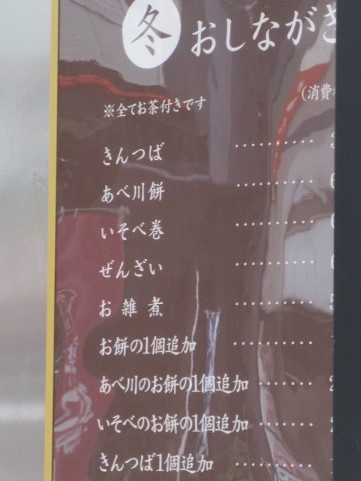 冬 おしながき
(消費
※全てお茶付きです
きんつば ··········
あべ川餅 ··········
いそべ巻 ··········
ぜんざい ··········
お雑煮 ··········
お餅の1個追加 ··········
あべ川のお餅の1個追加 ·······
いそべのお餅の1個追加 ·······
きんつば1個追加 ··········